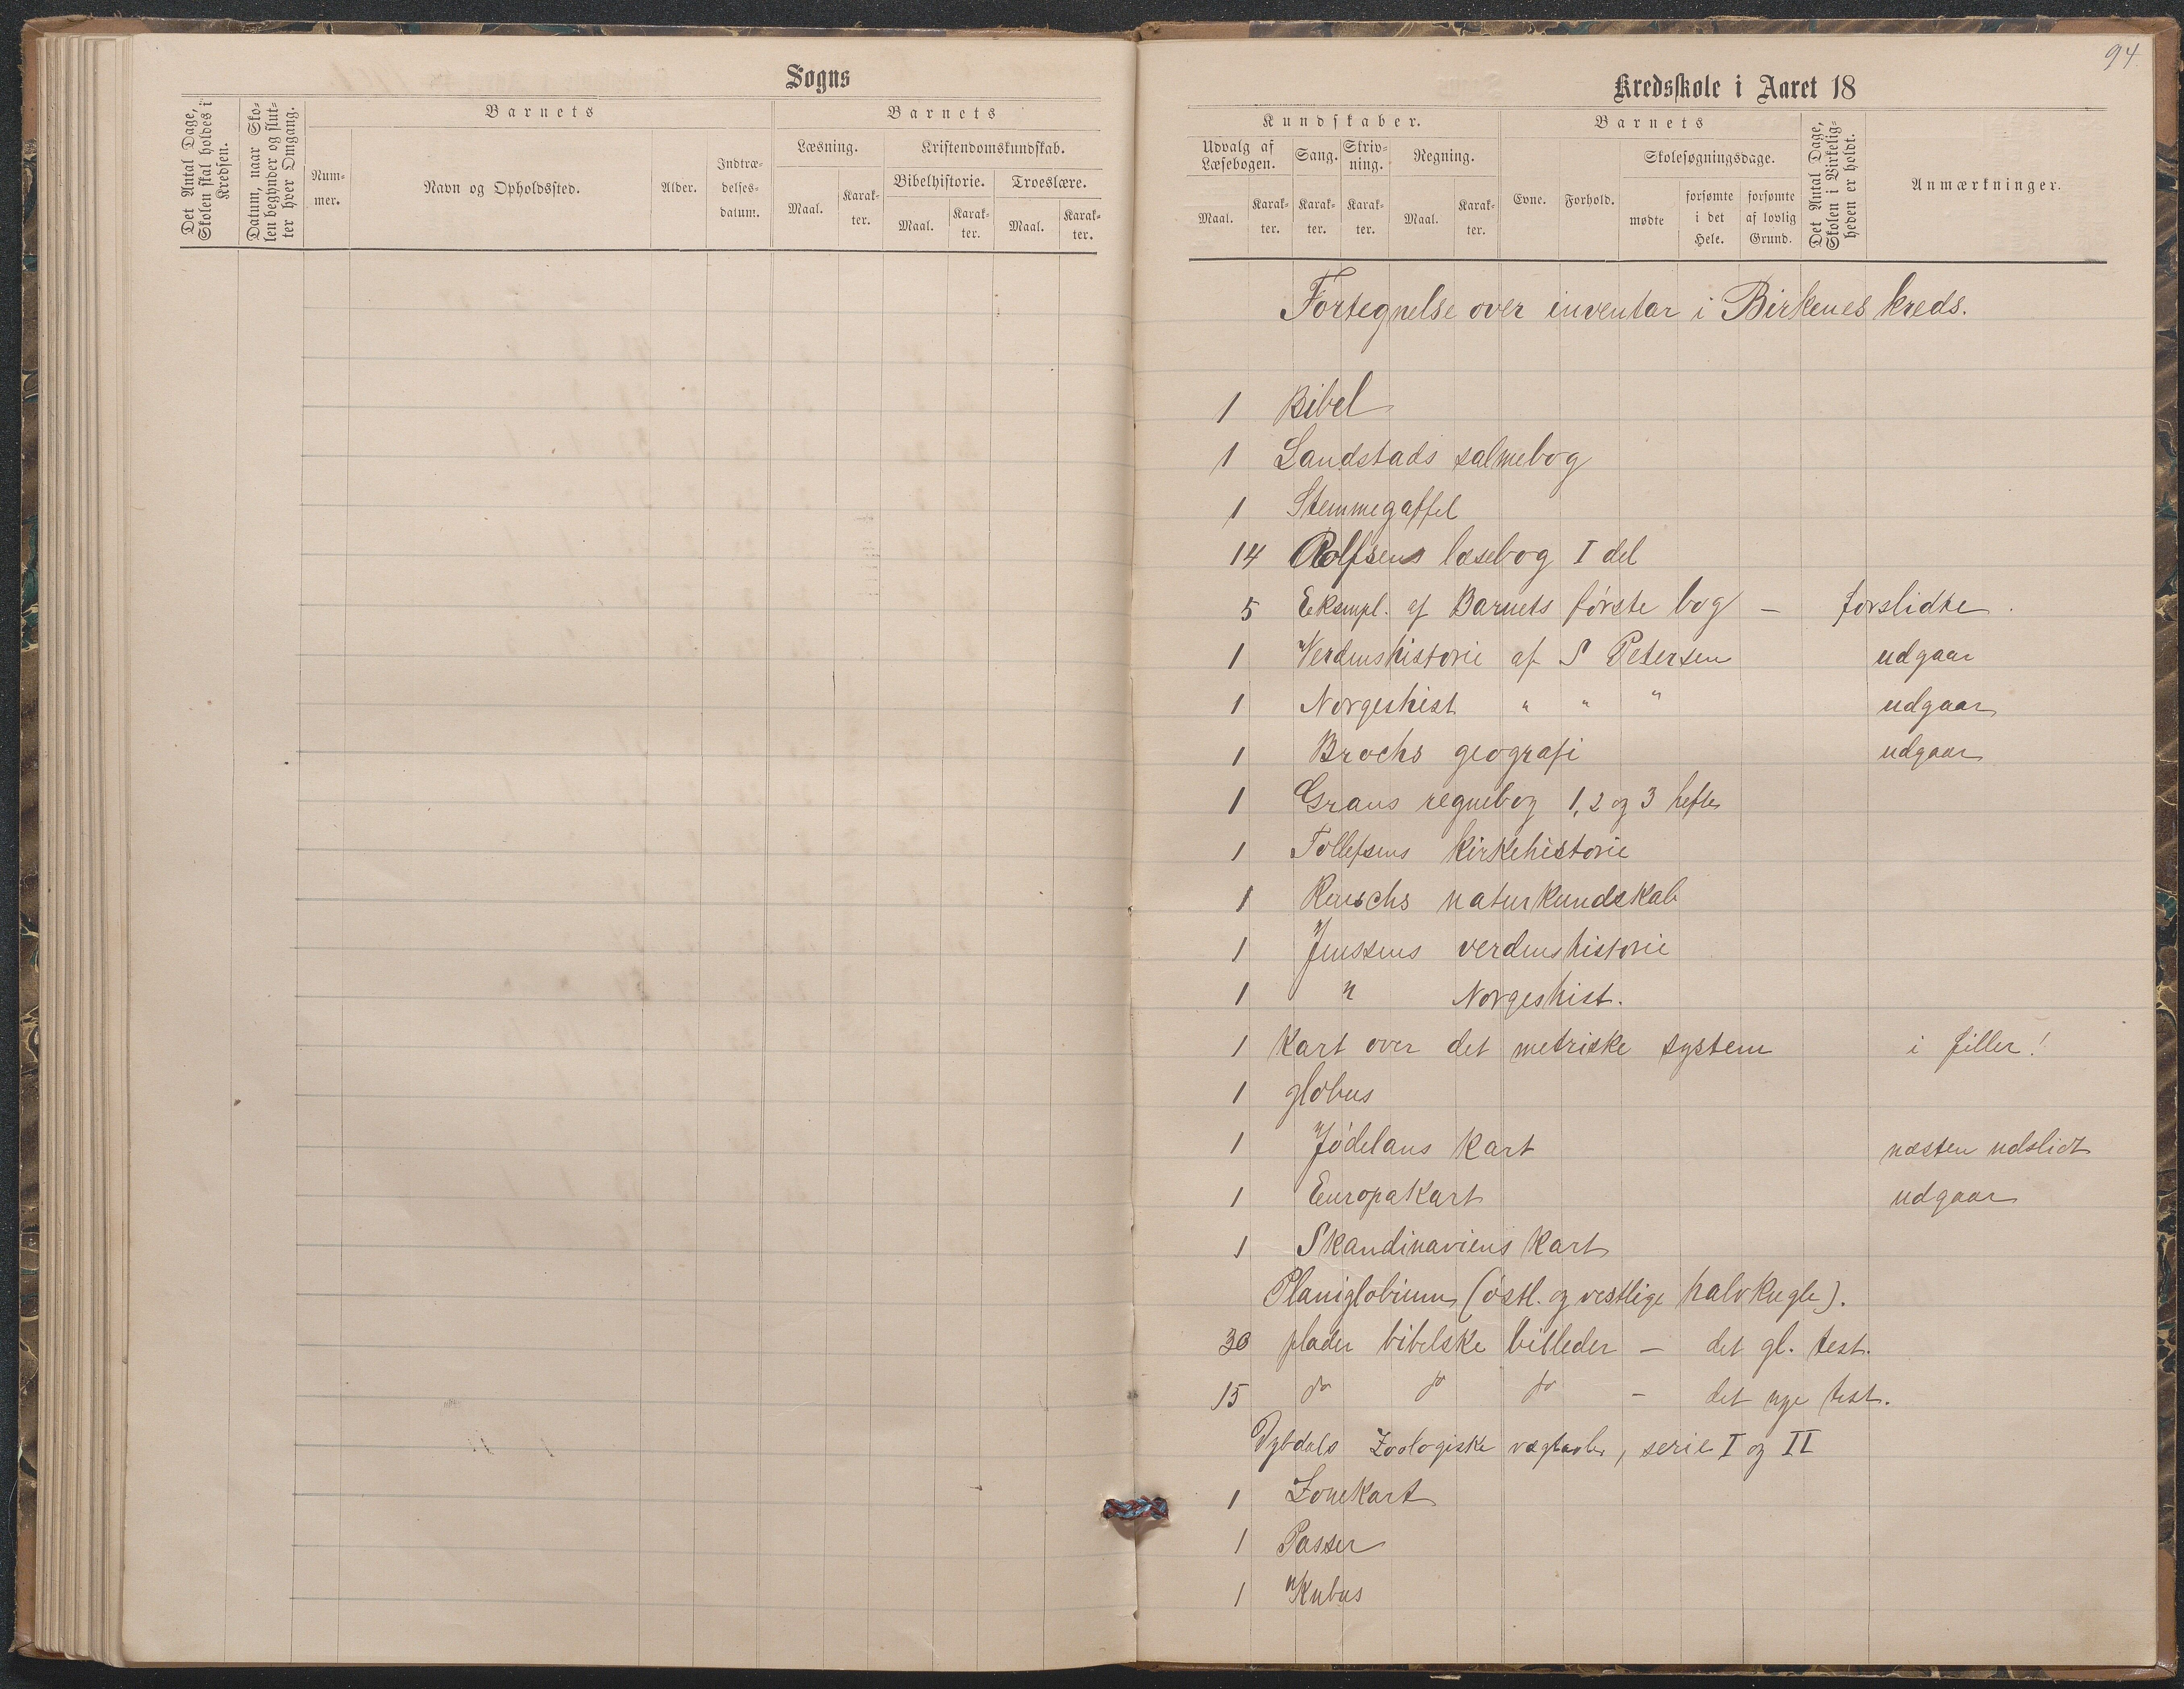 Sogns
Det Antal Dage, Skolen skal holdes i Kredsen.
Datum, naar Skolen begynder og slutter hver Omgang.
Barnets
Nummer.
Navn og Opholdssted.
Alder.
Indtrædelsesdatum.
Barnets
Læsning.
Maal.
Karakter.
Kristendomskundskab.
Bibelhistorie.
Maal.
Karakter.
Troeslære.
Maal.
Karakter.
94
Kredsskole i Aaret 18
Kundskaber.
Udvalg af Læsebogen.
Maal.
Karakter.
Sang.
Karakter.
Skrivning.
Karakter.
Regning.
Maal.
Karakter.
Barnets
Evne.
Forhold.
Skolesøgningsdage.
mødte
forsømte i det Hele.
forsømte af lovlig Grund.
Det Antal Dage, Skolen i Virkeligheden er holdt.
Anmærkninger.
Fortegnelse over inventar i Birkenes kreds.
1 Bibel
1 Landstads salmebog
1 Stemmegaffel
14 Rolfsens læsebog I del
5 Eksmpl. af Barnets første bog — forslidte.
1 Verdenshistorie af S Petersen udgaar
1 Norgeshist " " " udgaar
1 Brochs geografi udgaar
1 Grans regnebog 1, 2 og 3 hefte
1 Tollefsens kirkehistorie
1 Reuschs naturkundskab
1 Jenssens verdenshistorie
1 " Norgeshist.
1 Kart over det metriske system i filler!
1 globus
1 Jødelans kart næsten udslidt
1 Europakart udgaar
1 Skandinaviens kart
Planiglobium (østl. og vestlige halvkugle).
30 plader bibelske billeder — det gl. test.
15 do do do — det nye test.
Dybdals Zoologiske vægtavler, serie I og II
1 Zonekart
1 Passer
1 Kubus